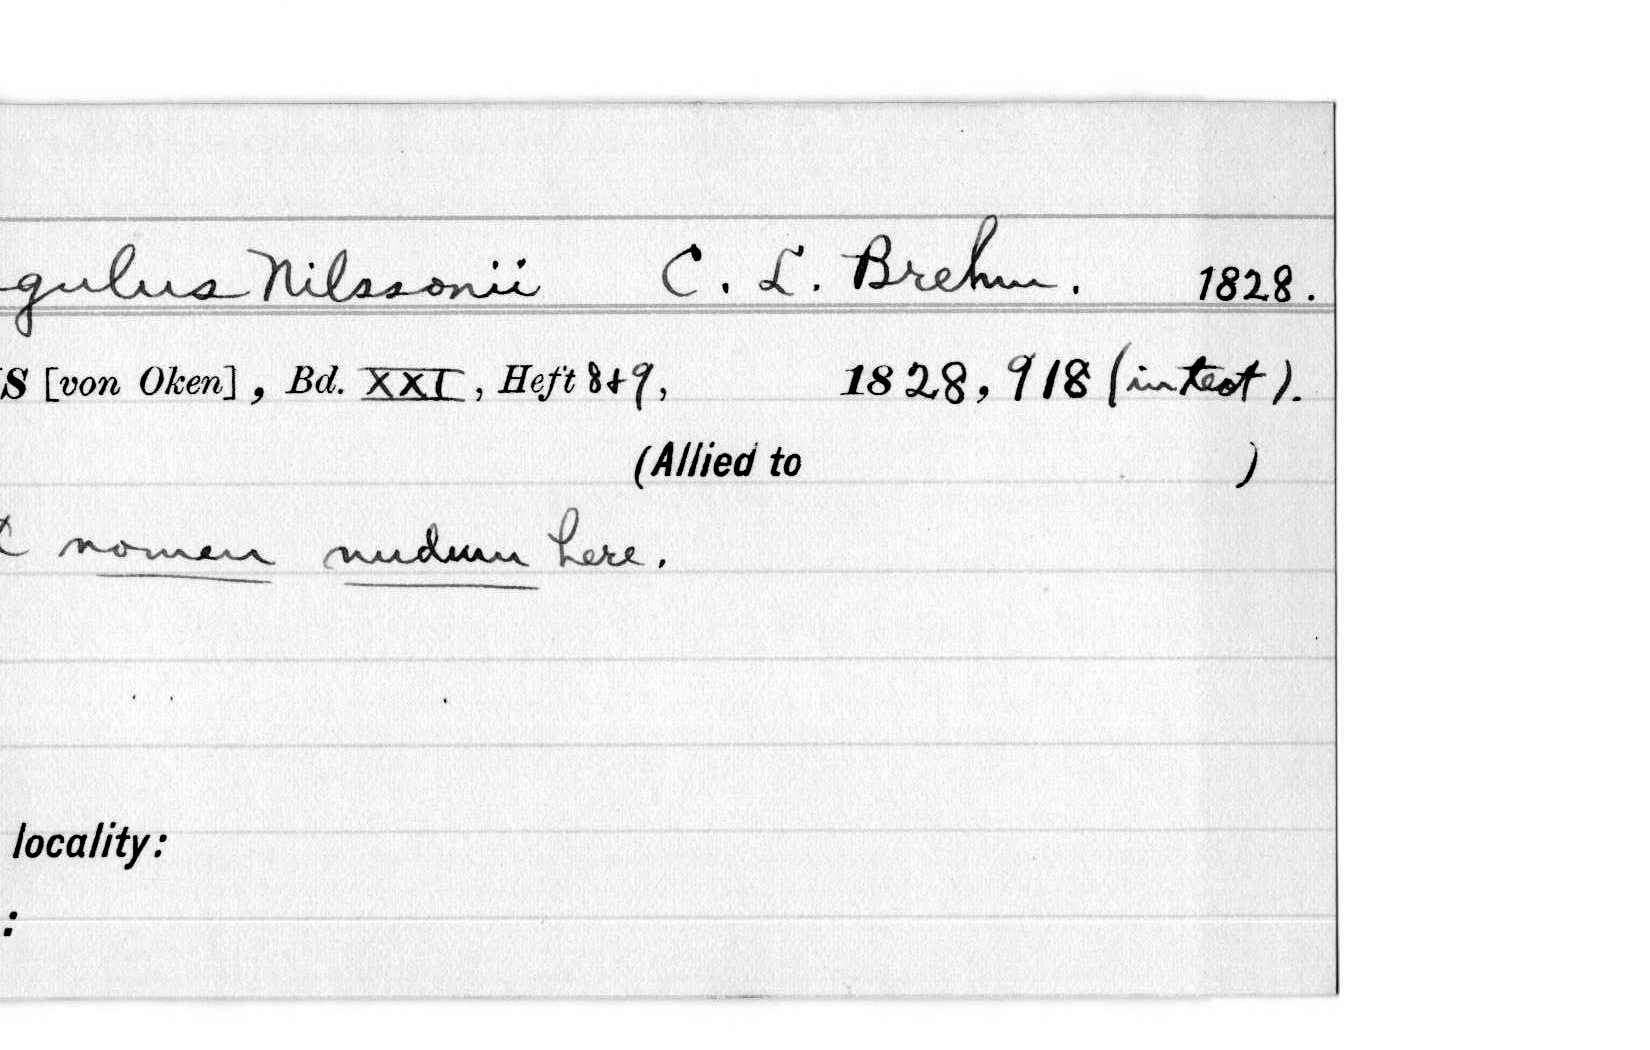 gulus Nilssonii C. L. Brehm. 1828.
S [von Oken], Bd. XXI, Heft 8+9, 1828, 918 (in text).
(Allied to )
nomen nudum here.
locality:
: